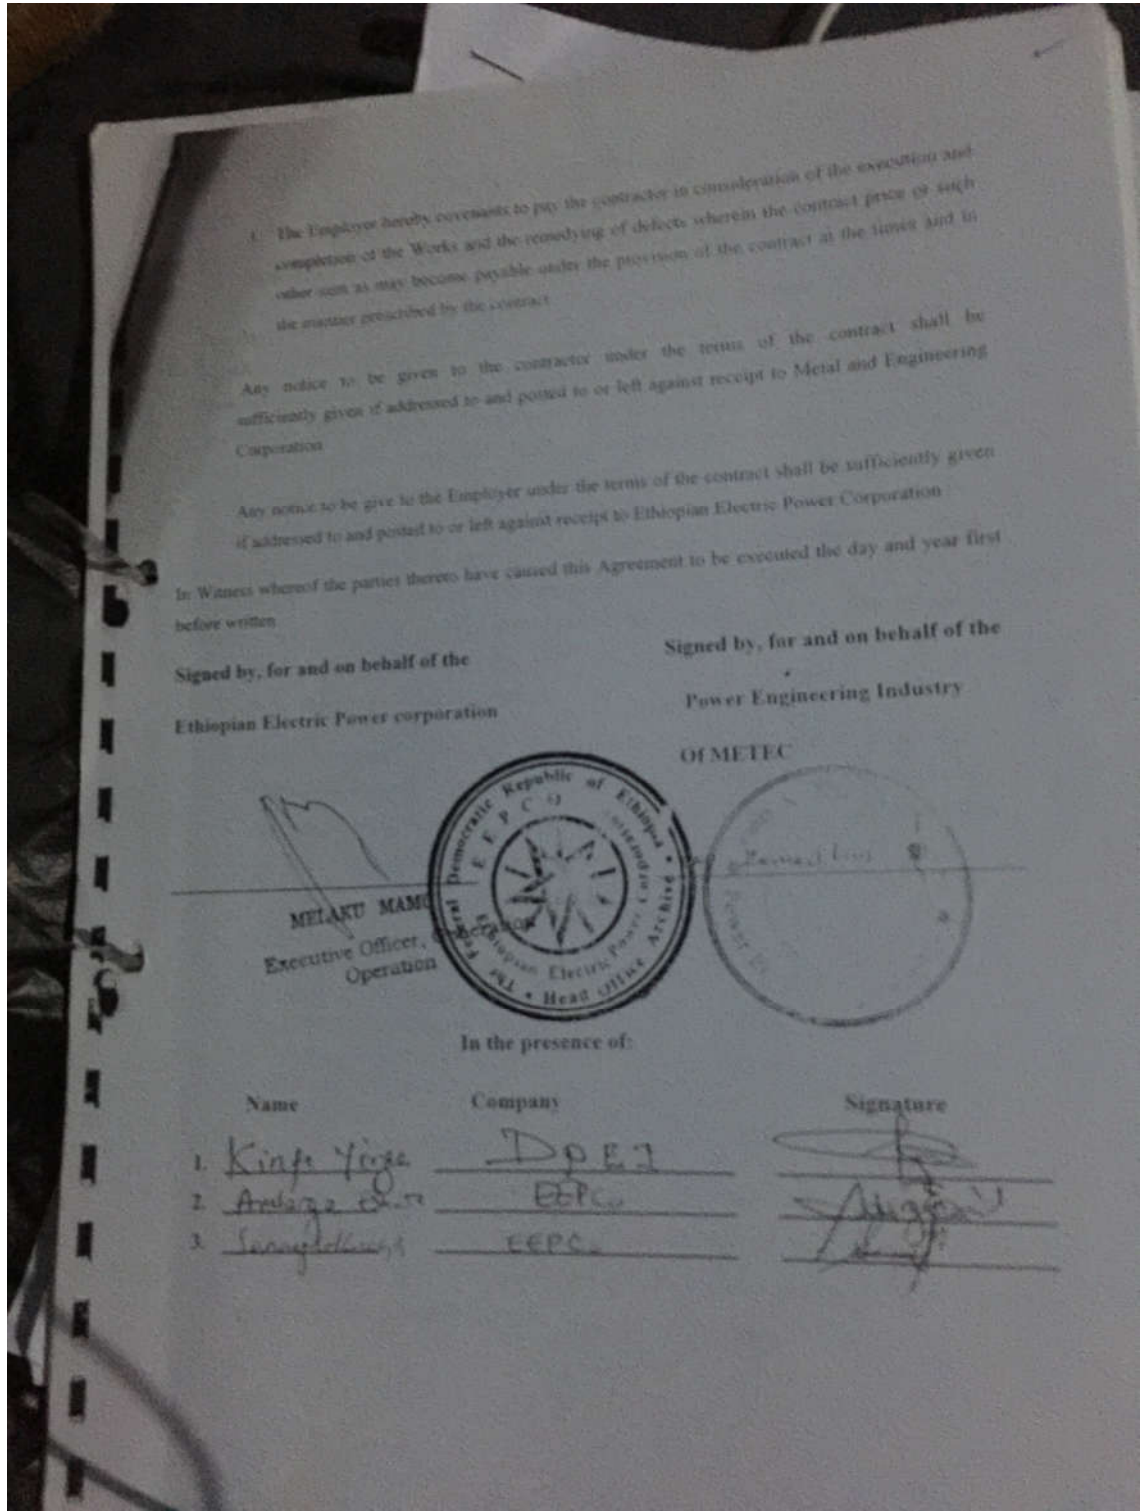 The Employer hereby covenants to pay the contractor in consideration of the execution and
completion of the Works and the remedying of defects wherein the contract price or such
other sum as may become payable under the provision of the contract at the times and in
the manner prescribed by the contract
Any notice to be given to the contractor under the terms of the contract shall be
sufficiently given if addressed to and posted to or left against receipt to Metal and Engineering
Corporation
Any notice to be give to the Employer under the terms of the contract shall be sufficiently given
if addressed to and posted to or left against receipt to Ethiopian Electric Power Corporation
In Witness whereof the parties thereto have caused this Agreement to be executed the day and year first
before written
Signed by, for and on behalf of the
Ethiopian Electric Power corporation
Signed by, for and on behalf of the
Power Engineering Industry
Of METEC
The Federal Democratic Republic of Ethiopia
EEPCO
Ethiopian Electric Power Corporation
Head Office Archive
MELAKU
Executive Officer, Generation
Operation
In the presence of:
Name Company Signature
1. Kinfe
2. EEPCo
3. EEPCo